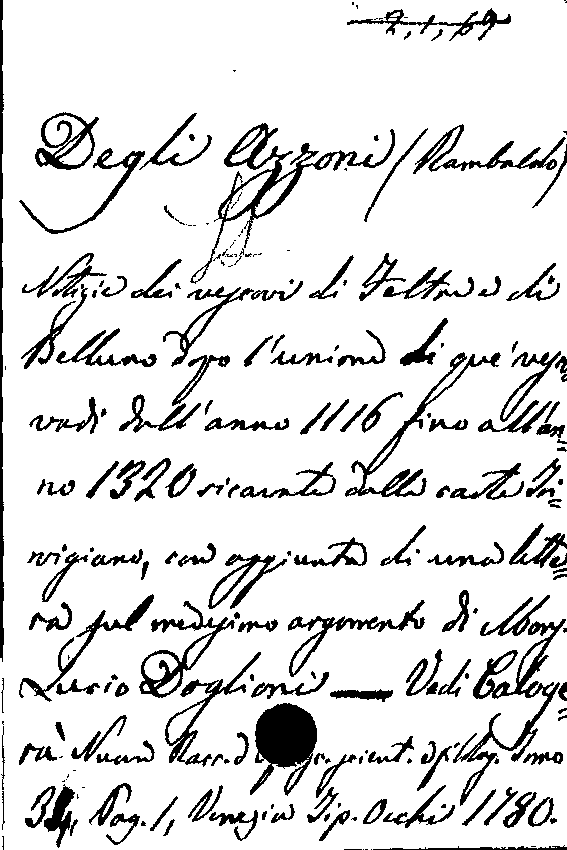 2, 1, 69
Degli Azzoni (Rambaldo)
Notizie dei vescovi di Feltre e di
Belluno dopo l'unione di que' vesco=
vadi dall'anno 1116 fino all'an=
no 1320 ricavate dalle carte Tri=
vigiane, con aggiunta di una lette=
ra sul medesimo argomento di Mons.
Lucio Doglioni — Vedi Caloge=
rà Nuova Racc. d scient. Tomo
34, Pag. 1, Venezia Tip. Occhi 1780.